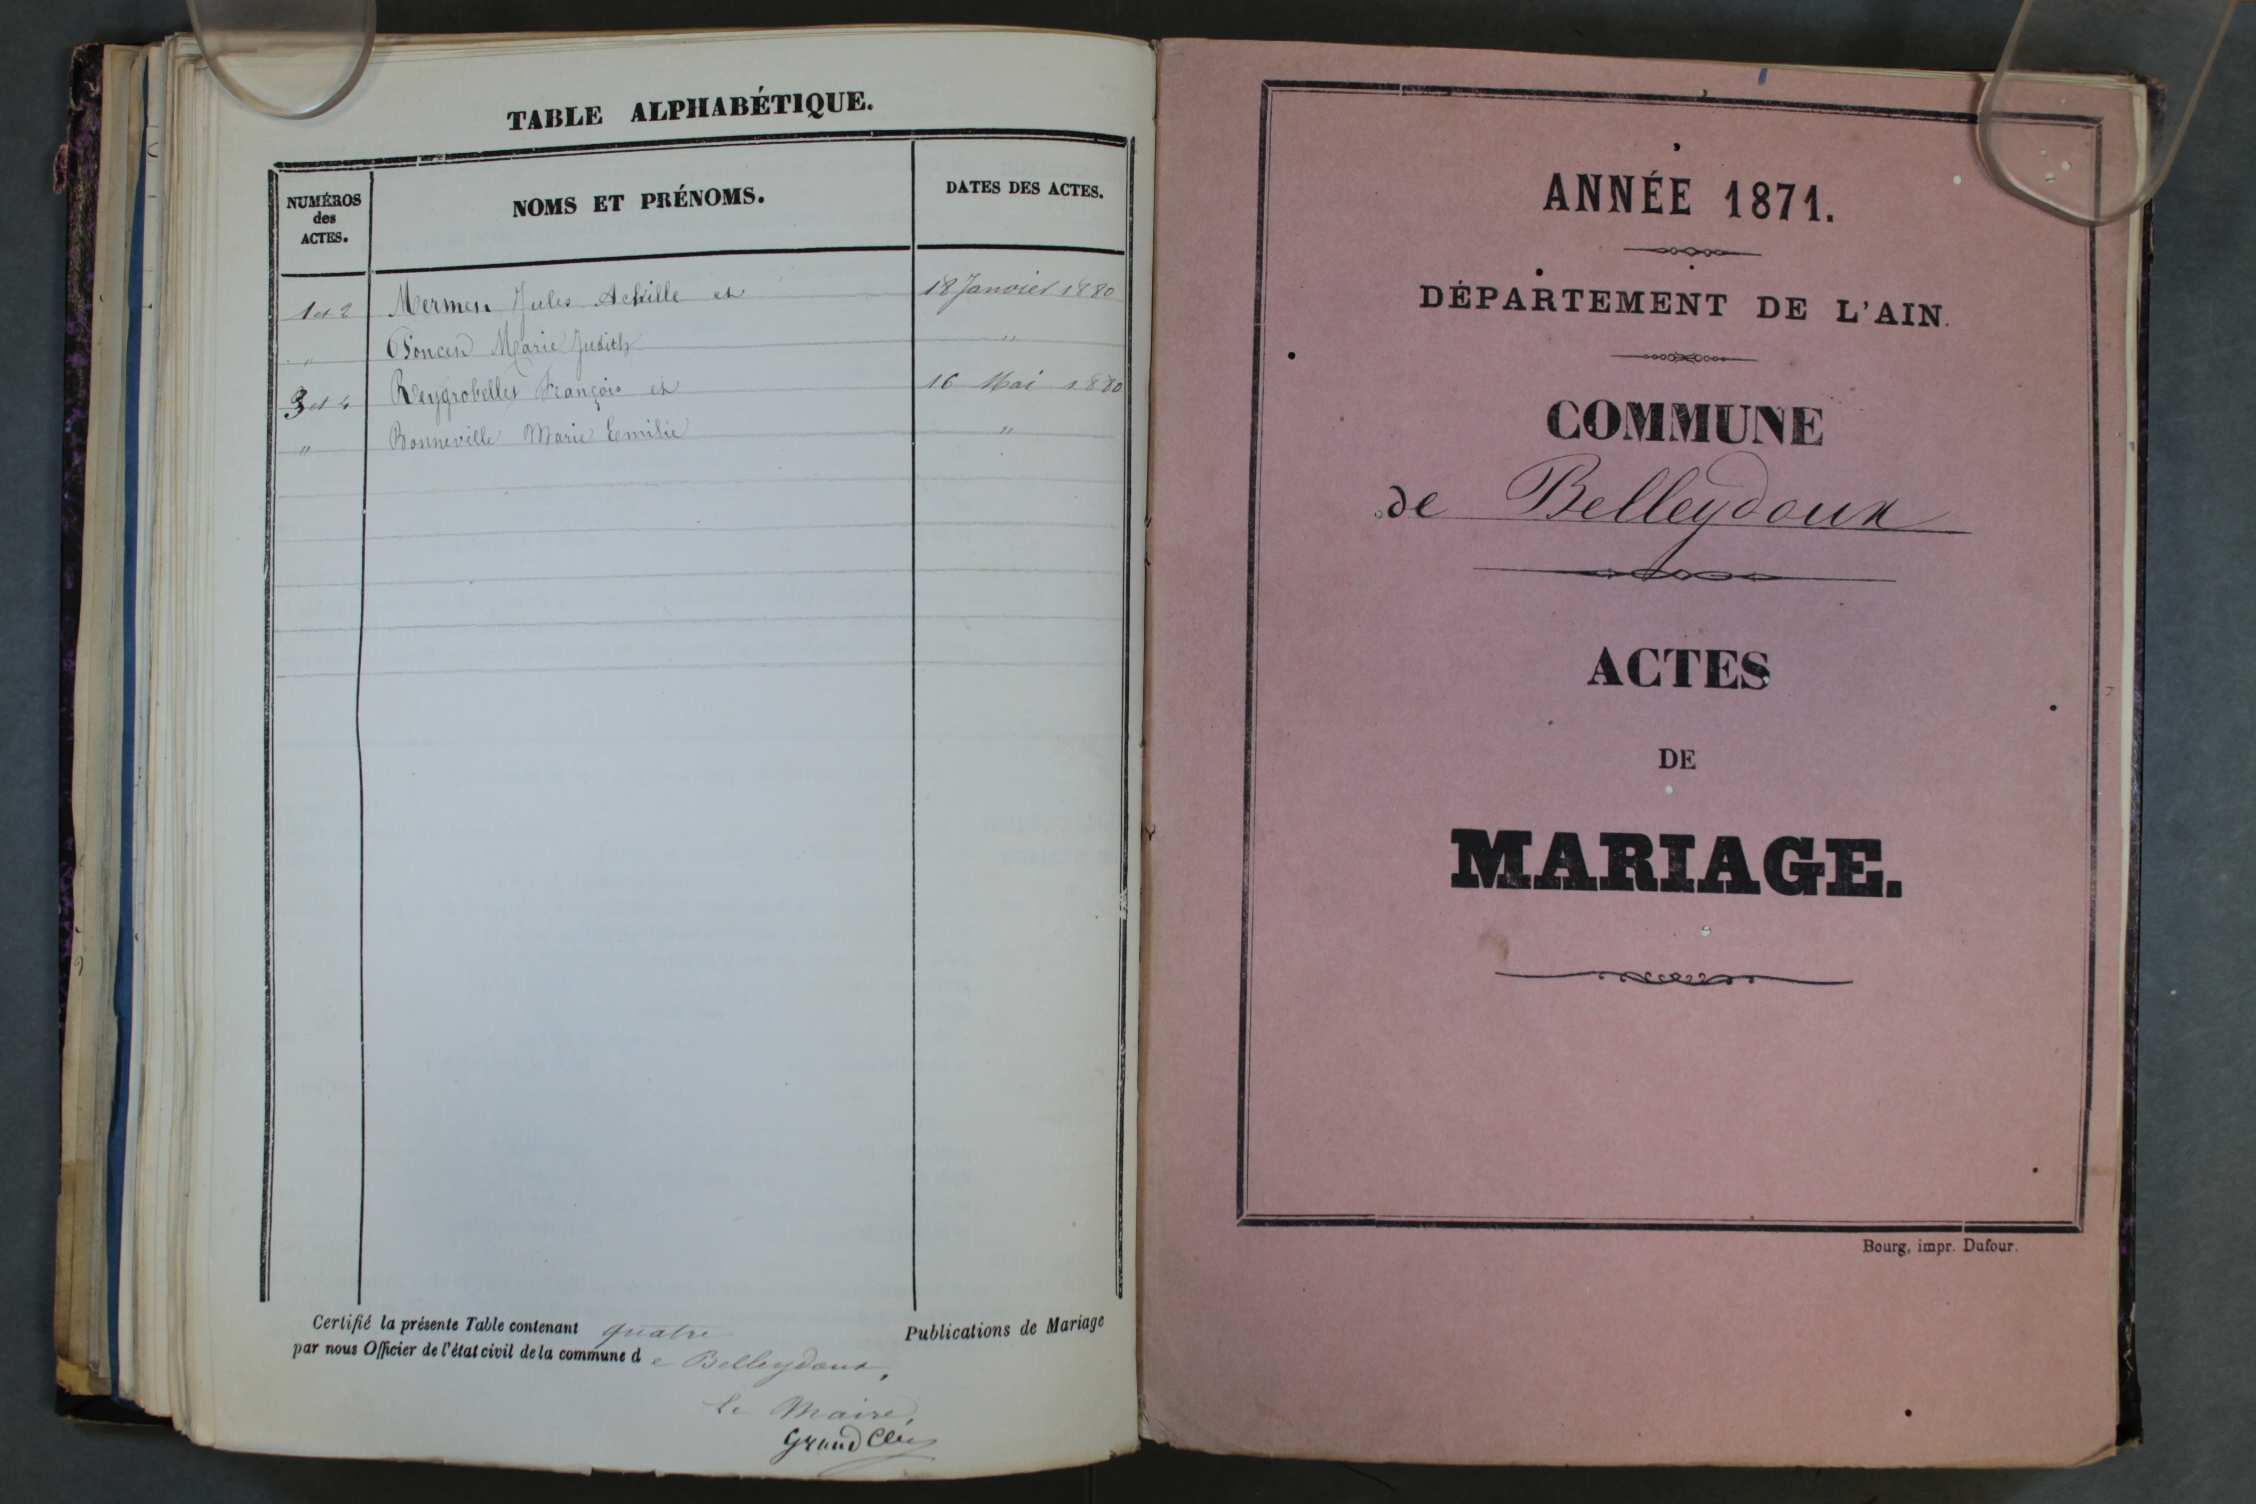 TABLE ALPHABÉTIQUE.
NUMÉROS
des
ACTES.
NOMS ET PRÉNOMS.
DATES DES ACTES.
1 et 2 Mermen Jules Achille et 18 Janvier 1880
" Poncin Marie Judith "
3 et 4 Reygrobellet François et 16 Mai 1880
" Bonneville Marie Emilie "
Certifié la présente Table contenant quatre Publications de Mariage
par nous Officier de l'état civil de la commune de Belleydoux,
le Maire,
ANNÉE 1871.
DÉPARTEMENT DE L'AIN.
COMMUNE
de Belleydoux
ACTES
DE
MARIAGE.
Bourg, impr. Dufour.